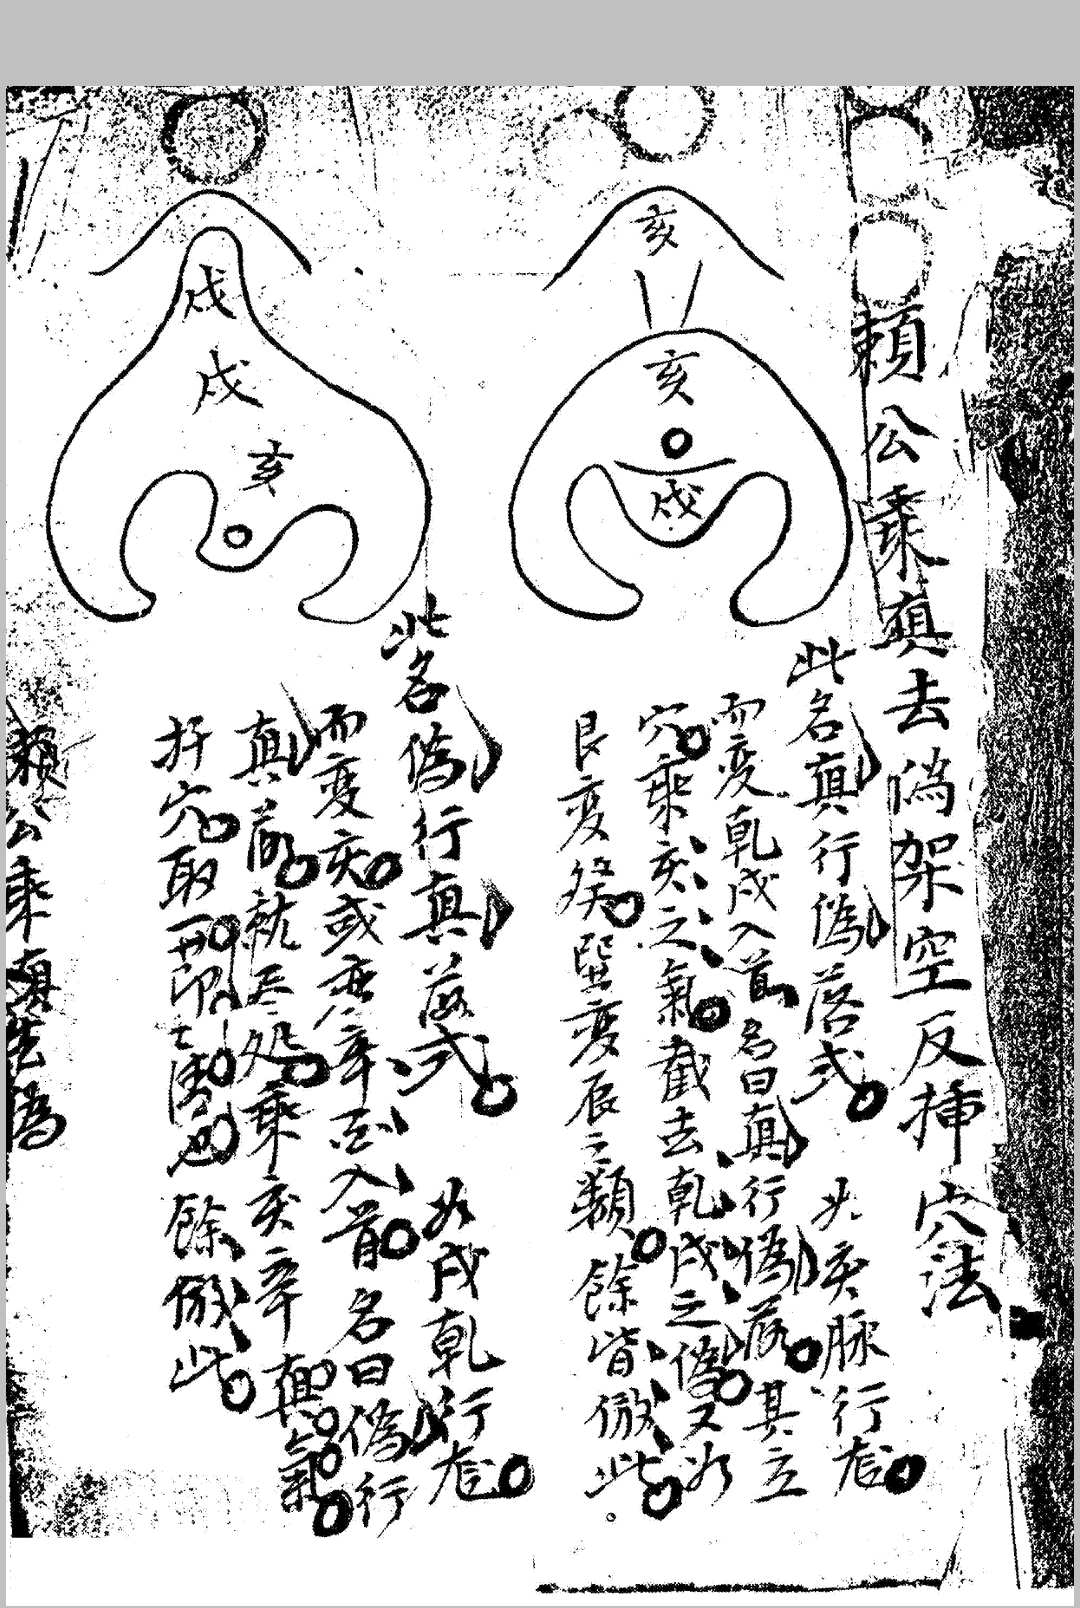 賴公乘真去偽架空反揷穴法
亥
亥
戌
此名真行偽落式　如亥脉行龙
而变乾戌入首名曰真行偽落其立
穴乘亥之氣截去乾戌之偽又如
艮变癸巽变辰之類餘皆倣此
戌
戌
亥
此名偽行真落式　如戌乾行龙
而变亥或变辛而入首名曰偽行
真落就尽処乘亥辛真氣
扦穴取用即也餘倣此
賴公乘真去偽